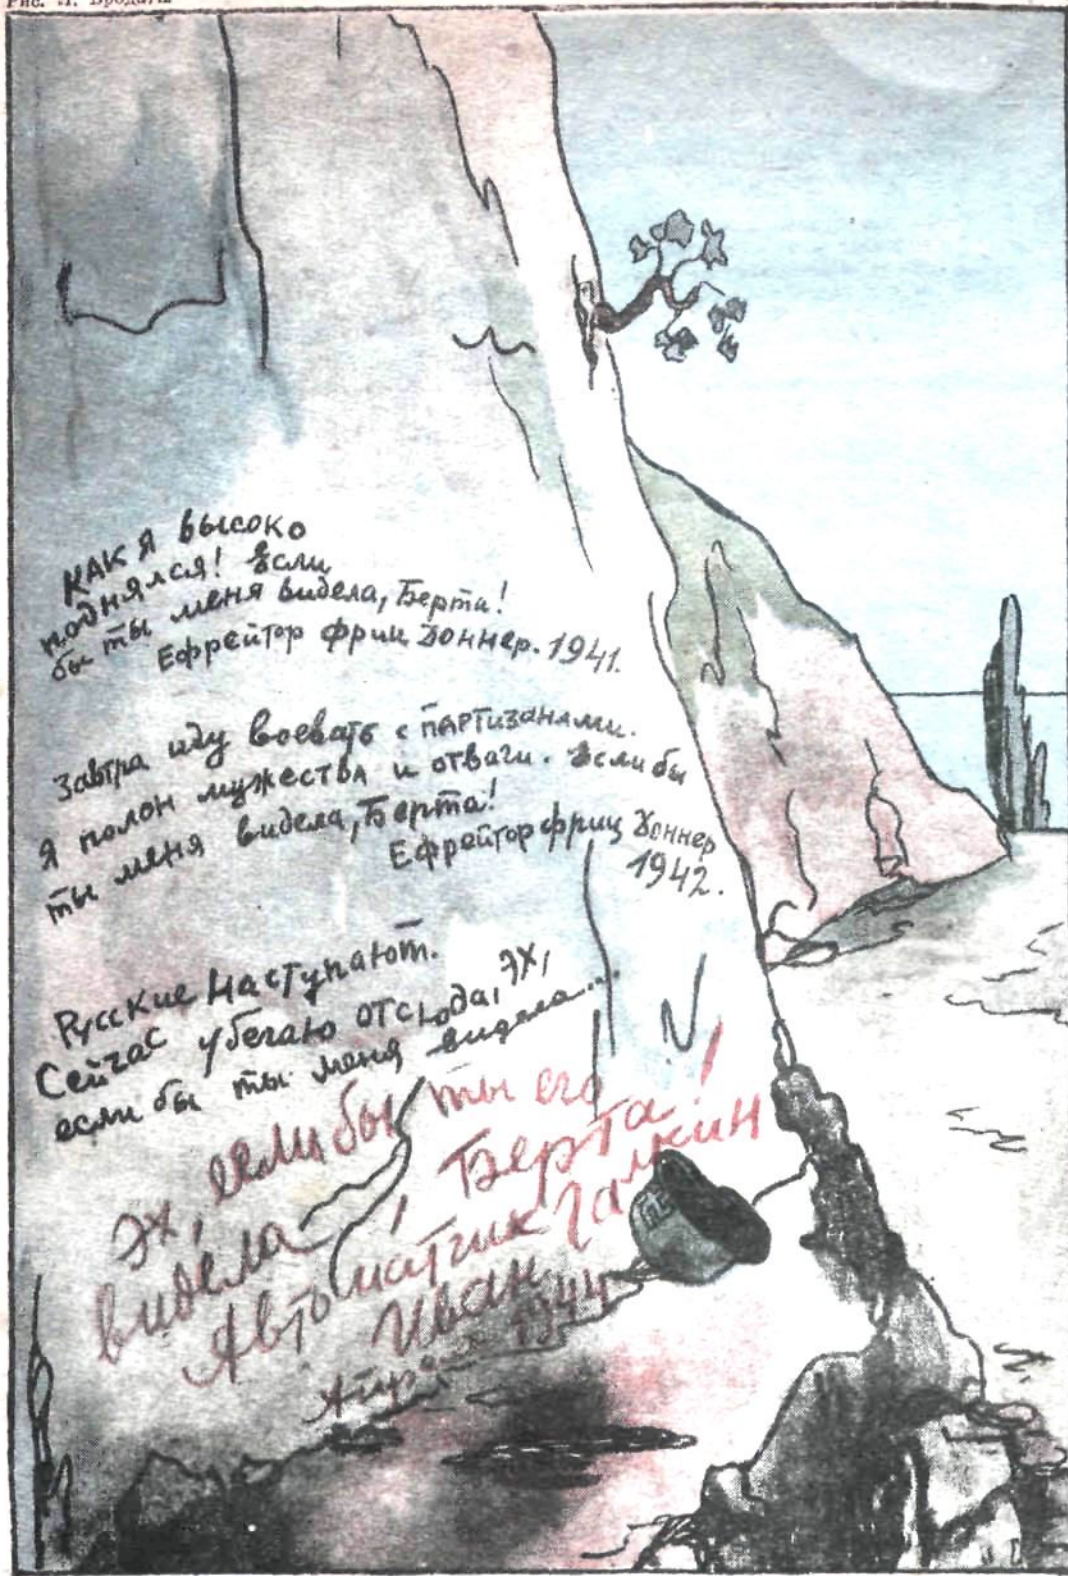 Рис. Л. Бродаты
КАК Я ВЫСОКО
поднялся! Если
бы ты меня видела, Берта!
Ефрейтор Фриц Доннер. 1941.
Завтра иду воевать с партизанами.
Я полон мужества и отваги. Если бы
ты меня видела, Берта!
Ефрейтор Фриц Доннер
1942.
Русские наступают.
Сейчас убегаю отсюда, эх,
если бы ты меня видела...
Эх, если бы ты его
видела, Берта!
Автоматчик Галкин
Иван
Апрель 1944